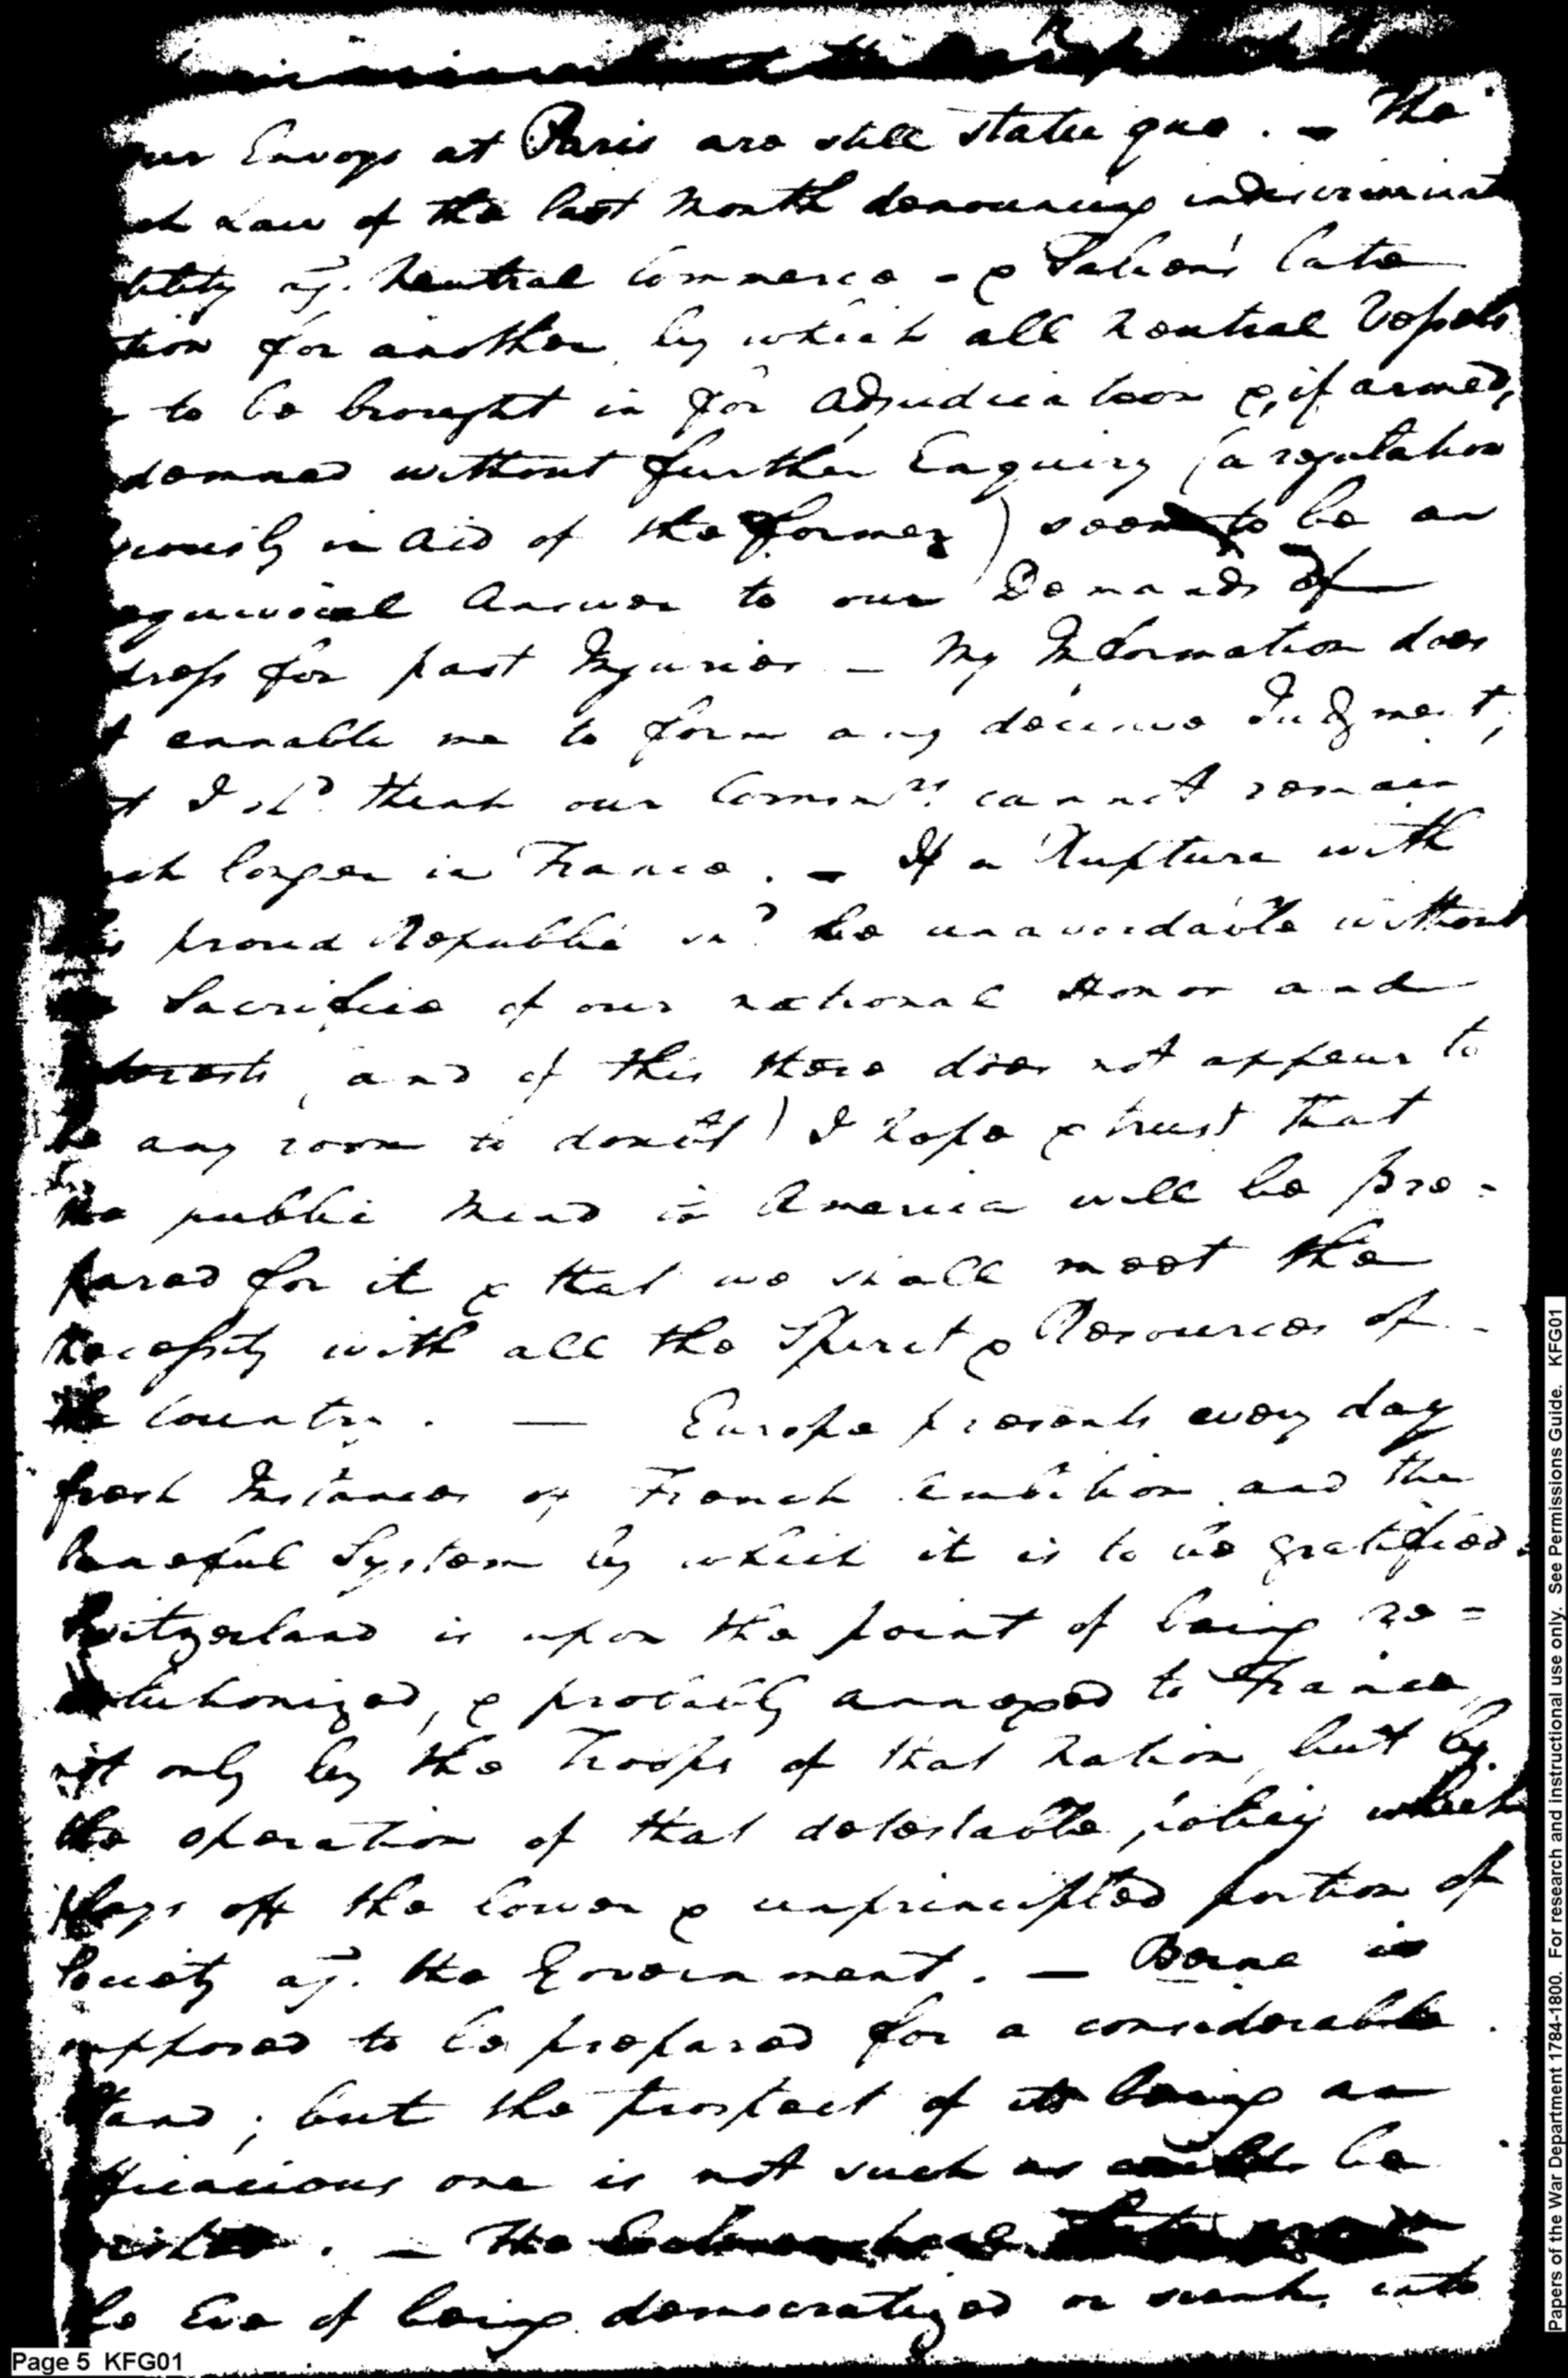 our Envoys at Paris are still statu quo. – The
Law of the last Month denouncing indiscriminate
ag.t Neutral Commerce – & late
tion for another by which all Neutral Vessels
to be brought in for adjudication &, if armed,
demned without further Enquiry (a regulation
viously in aid of the former) seem to be an
equivocal Answer to our Demands of
dress for past Injuries – My Information does
t ennable me to form any decisive Judgment,
t I sh.d think our Comm.rs cannot remain
ch longer in France. – If a Rupture with
s proud Republic sh.d be unavoidable without
Sacrifice of our national Honor and
terests (and of this there does not appear to
be any room to doubt) I hope & trust that
the public Mind in America will be pre-
pared for it & that we shall meet the
Necessity with all the Spirit & Resources of
the Country. — Europe presents every day
fresh Instances of French Ambition and the
baneful System by which it is to be gratified.
Switzerland is upon the point of being re=
volutionized, & probably annexed to France
not only by the Troops of that Nation, but by
the operation of that detestable policy which
plays off the lower & unprincipled portion of
Society ag.t the Government. — Berne is
supposed to be prepared for a considerable
Stand; but the prospect of its being an
efficacious one is not such as could be
. – The
the Eve of being democratized or sunk into
Page 5 KFG01
Papers of the War Department 1784-1800. For research and instructional use only. See Permissions Guide. KFG01